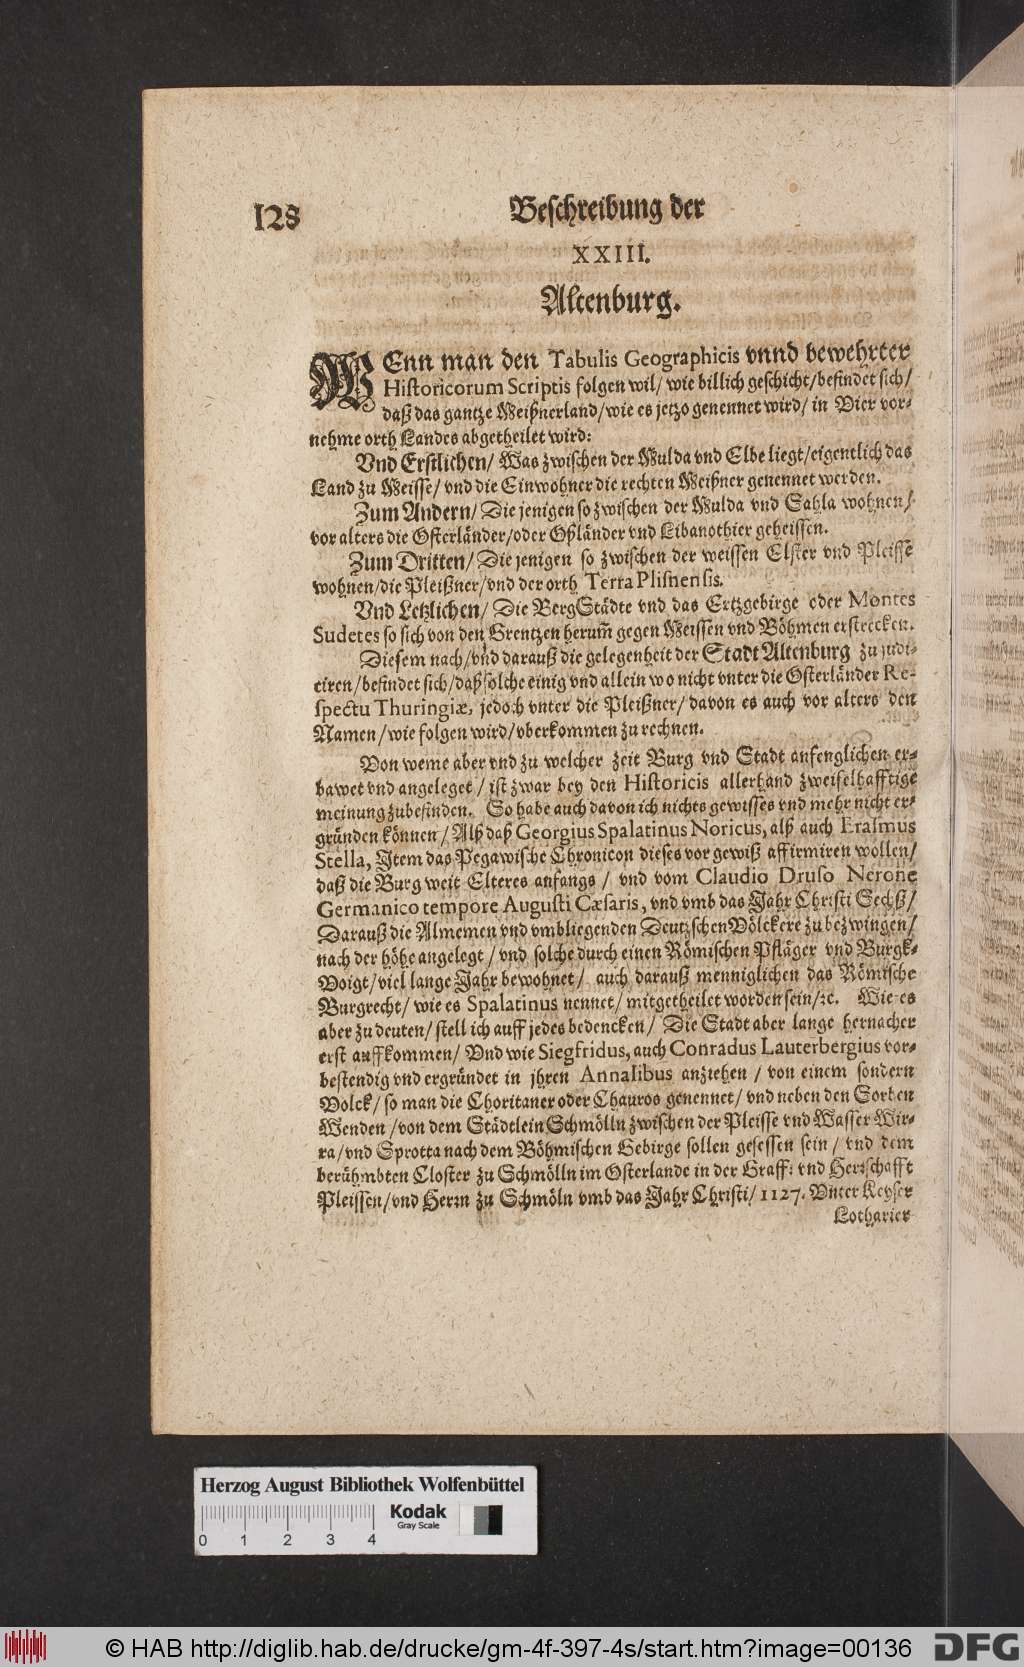 128 Beschreibung der
XXIII.
Altenburg.
WEnn man den Tabulis Geographicis vnnd bewehrter
Historicorum Scriptis folgen wil/ wie billich geschicht/ befindet sich/
daß das gantze Meißnerland/ wie es jetzo genennet wird/ in Vier vor-
nehme orth Landes abgetheilet wird:
Vnd Erstlichen/ Was zwischen der Mulda vnd Elbe liegt/ eigentlich das
Land zu Meisse/ vnd die Einwohner die rechten Meißner genennet werden.
Zum Andern/ Die jenigen so zwischen der Mulda vnd Sahla wohnen/
vor alters die Osterländer/ oder Oßländer vnd Libanothier geheissen.
Zum Dritten/ Die jenigen so zwischen der weissen Elster vnd Pleisse
wohnen/ die Pleißner/ vnd der orth Terra Plisnensis.
Vnd Letzlichen/ Die BergStädte vnd das Ertzgebirge oder Montes
Sudetes so sich von den Grentzen herum̃ gegen Meissen vnd Böhmen erstrecken.
Diesem nach/ vnd darauß die gelegenheit der Stadt Altenburg zu judi-
ciren/ befindet sich/ daß solche einig vnd allein wo nicht vnter die Osterländer Re-
spectu Thuringiæ, jedoch vnter die Pleißner/ davon es auch vor alters den
Namen/ wie folgen wird/ vberkommen zu rechnen.
Von weme aber vnd zu welcher zeit Burg vnd Stadt anfenglichen er-
bawet vnd angeleget/ ist zwar bey den Historicis allerhand zweifelhafftige
meinung zubefinden. So habe auch davon ich nichts gewisses vnd mehr nicht er-
gründen können/ Alß daß Georgius Spalatinus Noricus, alß auch Erasmus
Stella, Item das Pegawische Chronicon dieses vor gewiß affirmiren wollen/
daß die Burg weit Elteres anfangs/ vnd vom Claudio Druso Nerone
Germanico tempore Augusti Cæsaris, vnd vmb das Jahr Christi Sechß/
Darauß die Almemen vnd vmbliegenden Deutzschen Völckere zu bezwingen/
nach der höhe angelegt/ vnd solche durch einen Römischen Pfläger vnd Burgk-
Voigt/ viel lange Jahr bewohnet/ auch darauß menniglichen das Römische
Burgrecht/ wie es Spalatinus nennet/ mitgetheilet worden sein/ ꝛc. Wie es
aber zu deuten/ stell ich auff jedes bedencken/ Die Stadt aber lange hernacher
erst auffkommen/ Vnd wie Siegfridus, auch Conradus Lauterbergius vor-
bestendig vnd ergründet in jhren Annalibus anziehen/ von einem sondern
Volck/ so man die Choritaner oder Chauros genennet/ vnd neben den Sorben
Wenden/ von dem Städtlein Schmölln zwischen der Pleisse vnd Wasser Wir-
ra/ vnd Sprotta nach dem Böhmischen Gebirge sollen gesessen sein/ vnd dem
berühmbten Closter zu Schmölln im Osterlande in der Graff: vnd Herrschafft
Pleissen/ vnd Herrn zu Schmöln vmb das Jahr Christi/ 1127. Vnter Keyser
Lotharier
Herzog August Bibliothek Wolfenbüttel
Kodak
Gray Scale
0 1 2 3 4
© HAB http://diglib.hab.de/drucke/gm-4f-397-4s/start.htm?image=00136 DFG